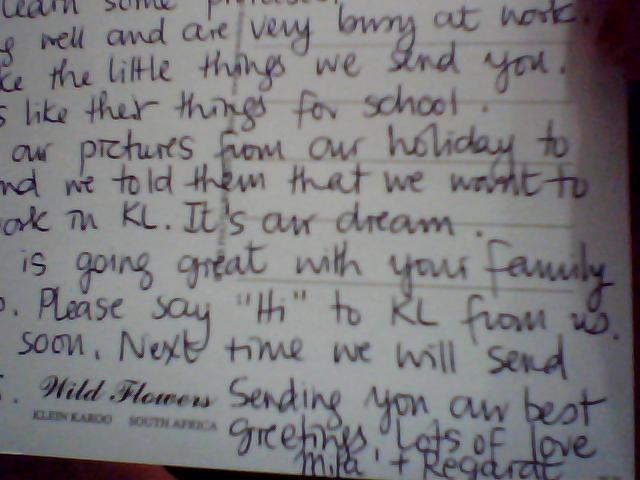 learn some phrases.
well and are very busy at work.
the little things we send you.
like their things for school.
our pictures from our holiday to
and we told them that we want to
work in KL. It's our dream.
is going great with your family
Please say "Hi" to KL from us.
soon. Next time we will send
Wild Flowers
KLEIN KAROO SOUTH AFRICA
Sending you our best
greetings. Lots of love
+